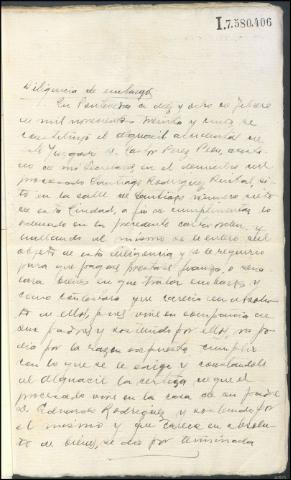 I.7.580.406
Diligencia de embargo,
En Pontevedra a diez y ocho de Febrero
de mil novecientos treinta y cinco, se
constituyó el alguacil accidental de
este Juzgado D. Pérez, asisti-
do de mi Secretario, en el domicilio del
procesado Santiago Rodríguez, si-
to en la calle de Santiago número siete
de esta Ciudad, a fin de cumplimentar lo
ordenado en la precedente
hallando al mismo se le entero del
objeto de esta diligencia y se le requirio
para que pagase prestase fianza, o seña-
lara bienes en que trabar embargo y
como contestara que carecia en absoluto
de ellos, pues vive en compañia de
sus padres y sostenido por ellos, no po-
dia por la razon expuesta cumplir
con lo que se le exige y constandole
al Alguacil la certeza de que el
procesado vive en la casa de su padre
D. Edmundo Rodriguez y sostenido por
el mismo y que carece en absolu-
to de bienes, se dio por terminada